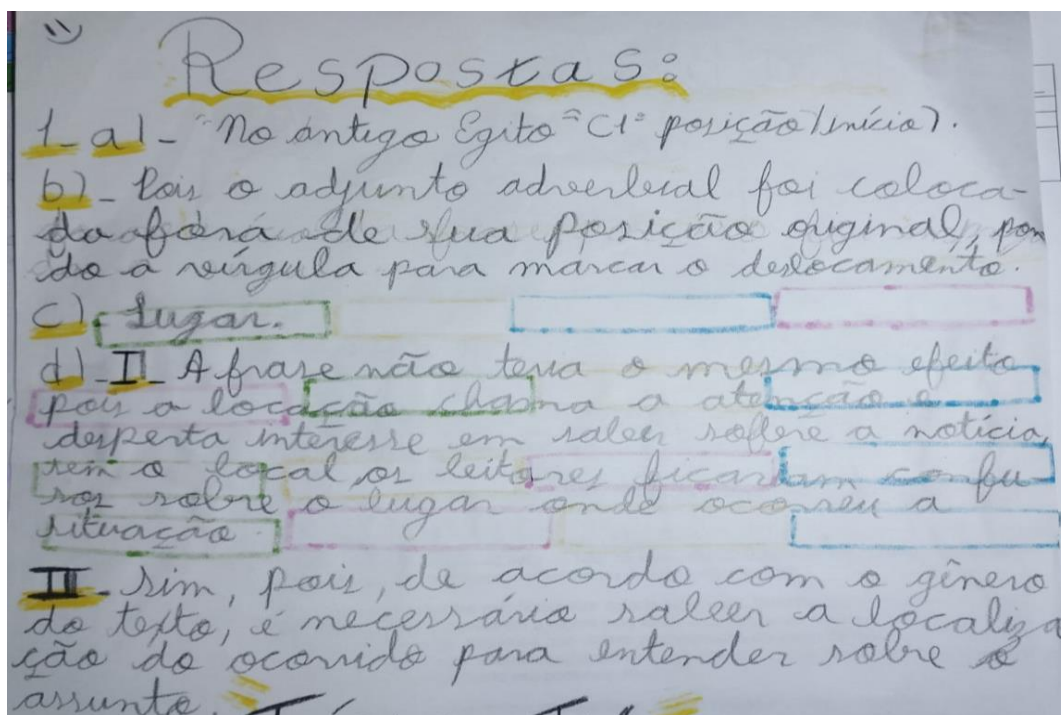 Respostas:
1_ a) - "No antigo Egito" (1ª posição/início).
b) - Pois o adjunto adverbial foi coloca-
do fora de sua posição original, pon
do a vírgula para marcar o deslocamento.
c) - Lugar.
d) - II - A frase não teria o mesmo efeito
pois a locação chama a atenção e
desperta interesse em saber sobre a notícia,
sem o local, os leitores ficariam confu
sos sobre o lugar onde ocorreu a
situação
III - Sim, pois, de acordo com o gênero
do texto, é necessário saber a localiza
ção do ocorrido para entender sobre o
assunto.